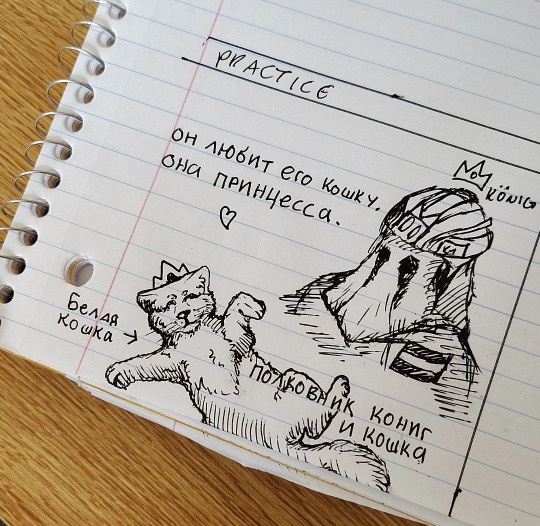 PRACTICE
он любит его кошку.
она принцесса.
KÖNIG
Белая
кошка →
полковник кониг
и кошка